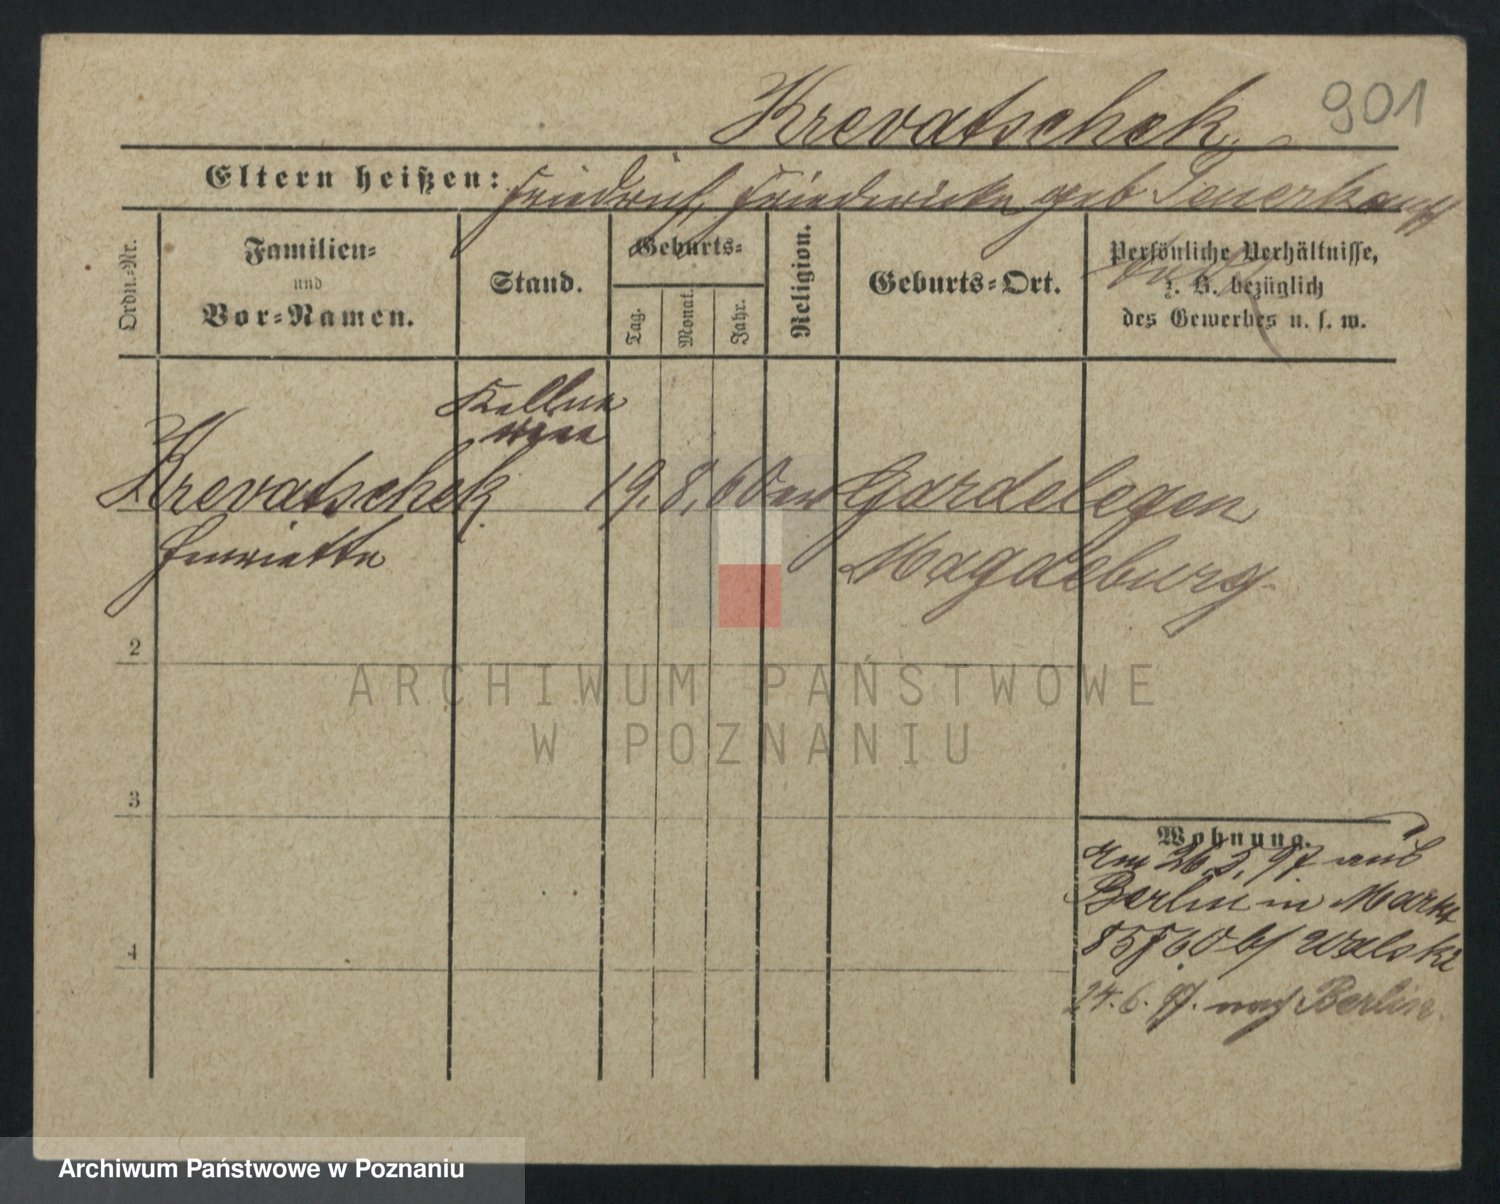 Krevatschek
901
Eltern heißen: Friedrich, Friedericke geb
Ordn.-Nr.
Familien-
und
Vor-Namen.
Stand.
Geburts-
Tag.
Monat.
Jahr.
Religion.
Geburts-Ort.
Persönliche Verhältnisse,
z. B. bezüglich
des Gewerbes u. s. w.
Kellne
rin
Krevatschek 19. 8. 60 ev Gardelegen
Henriette
Magdeburg
2
3
4
Wohnung.
Am 26.5.97 aus
Berlin in Markt
85/60 b/ Walski
24.6.97. nach Berlin.
ARCHIWUM PAŃSTWOWE
W POZNANIU
Archiwum Państwowe w Poznaniu